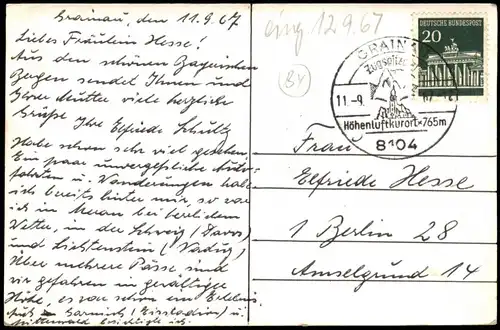 Grainau, den 11.9.67
Liebes Fräulein Hesse!
Aus den schönen Bayrischen
Bergen sendet Ihnen und
Ihrer Mutter viele herzliche
Grüße Ihre Elfriede Schultz
Habe schon sehr viel gesehen.
Ein paar unvergeßliche Auto-
fahrten u. Wanderungen habe
ich bereits hinter mir, so war
ich in Meran bei herrl. dem
Wetter, in der Schweiz (Davos)
und Lichtenstein (Vaduz)
Über mehrere Pässe sind
wir gefahren in gewaltiger
Höhe, es war schon ein Erlebnis
Garmisch (Eisstadion) u.
Mittenwald besichtigte ich.
eing 12.9.67
(BY)
DEUTSCHE BUNDESPOST
20
GRAINAU
Zugspitze
11.-9.
Höhenluftkurort·765m
8104
Frau
Elfriede Hesse
1 Berlin 28
Amselgrund 14